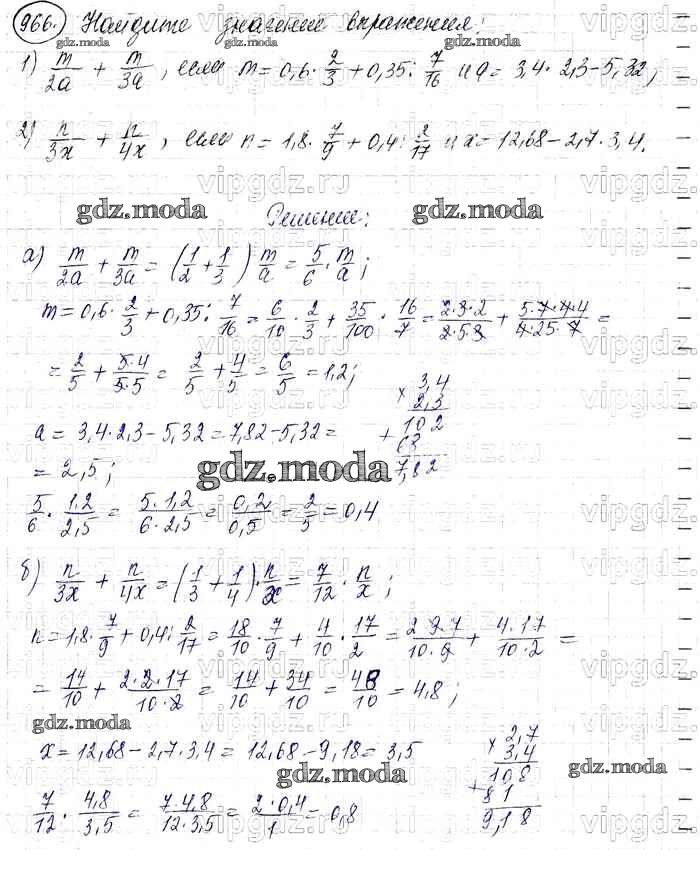 966. Найдите значение выражения:
1) m/2a + m/3a, если m = 0,6 · 2/3 + 0,35 : 7/16 и a = 3,4 · 2,3 − 5,32;
2) n/3x + n/4x, если n = 1,8 · 7/9 + 0,4 : 2/17 и x = 12,68 − 2,7 · 3,4.
Решение:
а) m/2a + m/3a = (1/2 + 1/3) m/a = 5/6 · m/a;
m = 0,6 · 2/3 + 0,35 : 7/16 = 6/10 · 2/3 + 35/100 · 16/7 = 2·3·2/2·5·3 + 5·7·4·4/4·25·7 =
= 2/5 + 5·4/5·5 = 2/5 + 4/5 = 6/5 = 1,2;
a = 3,4 · 2,3 − 5,32 = 7,82 − 5,32 =
= 2,5;
× 3,4
2,3
102
+ 68
7,82
5/6 · 1,2/2,5 = 5·1,2/6·2,5 = 0,2/0,5 = 2/5 = 0,4
б) n/3x + n/4x = (1/3 + 1/4) · n/x = 7/12 · n/x;
n = 1,8 · 7/9 + 0,4 : 2/17 = 18/10 · 7/9 + 4/10 · 17/2 = 2·9·7/10·9 + 4·17/10·2 =
= 14/10 + 2·2·17/10·2 = 14/10 + 34/10 = 48/10 = 4,8;
x = 12,68 − 2,7 · 3,4 = 12,68 − 9,18 = 3,5
× 2,7
3,4
108
+ 81
9,18
7/12 · 4,8/3,5 = 7·4,8/12·3,5 = 2·0,4/1 = 0,8
gdz.moda
vipgdz.ru